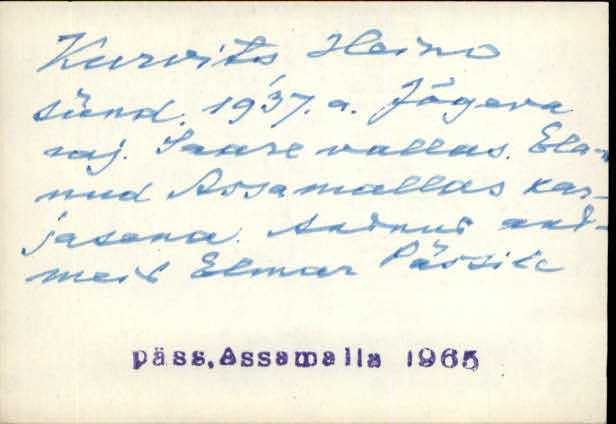 Kurvits Heino
sünd. 1937. a. Jõgeva
raj. Saare vallas. Ela-
nud Assamallas kar-
jasena. Andnud and-
meid Elmar Pässik
päss, Assamalla 1965